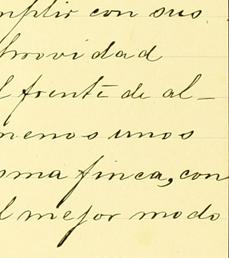 mplir con sus
trovidad
l frente de al-
menos unos
sma finca, con
l mejor modo